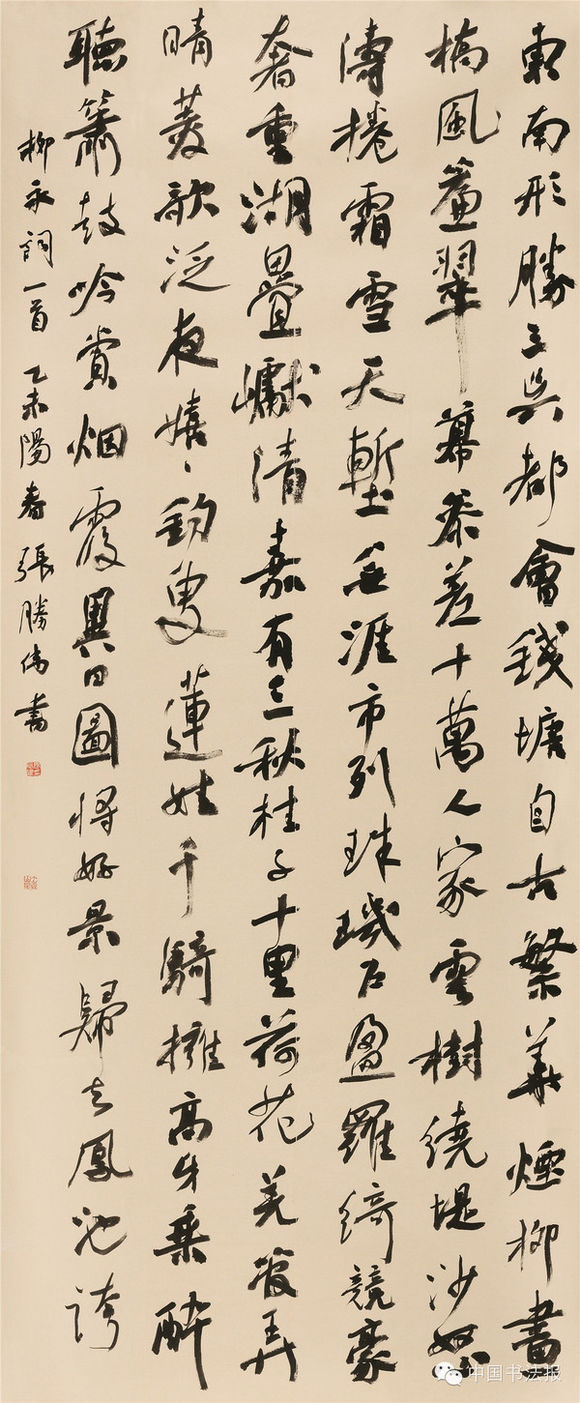 東南形勝三吳都會錢塘自古繁華煙柳畫
橋風簾翠幕參差十萬人家雲樹繞堤沙怒
濤捲霜雪天塹無涯市列珠璣戶盈羅綺競豪
奢重湖疊巘清嘉有三秋桂子十里荷花羌管弄
晴菱歌泛夜嬉〻釣叟蓮娃千騎擁高牙乘醉
聽簫鼓吟賞烟霞異日圖將好景歸去鳳池誇
柳永詞一首 乙未陽春張勝偉書
中国书法报